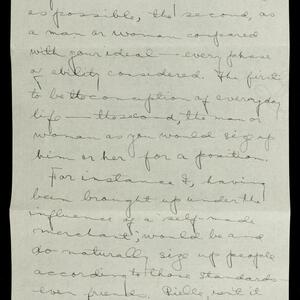 as possible, the second, as
a man or woman compared
with your ideal — every phase
of ability considered. The first
to be the conception of everyday
life — the second, the man or
woman as you would size up
him or her for a position.
For instance I, having
been brought up under the
influence of a "self-made
merchant", would be and
do naturally size up people
according to those standards
even friends. isn't it